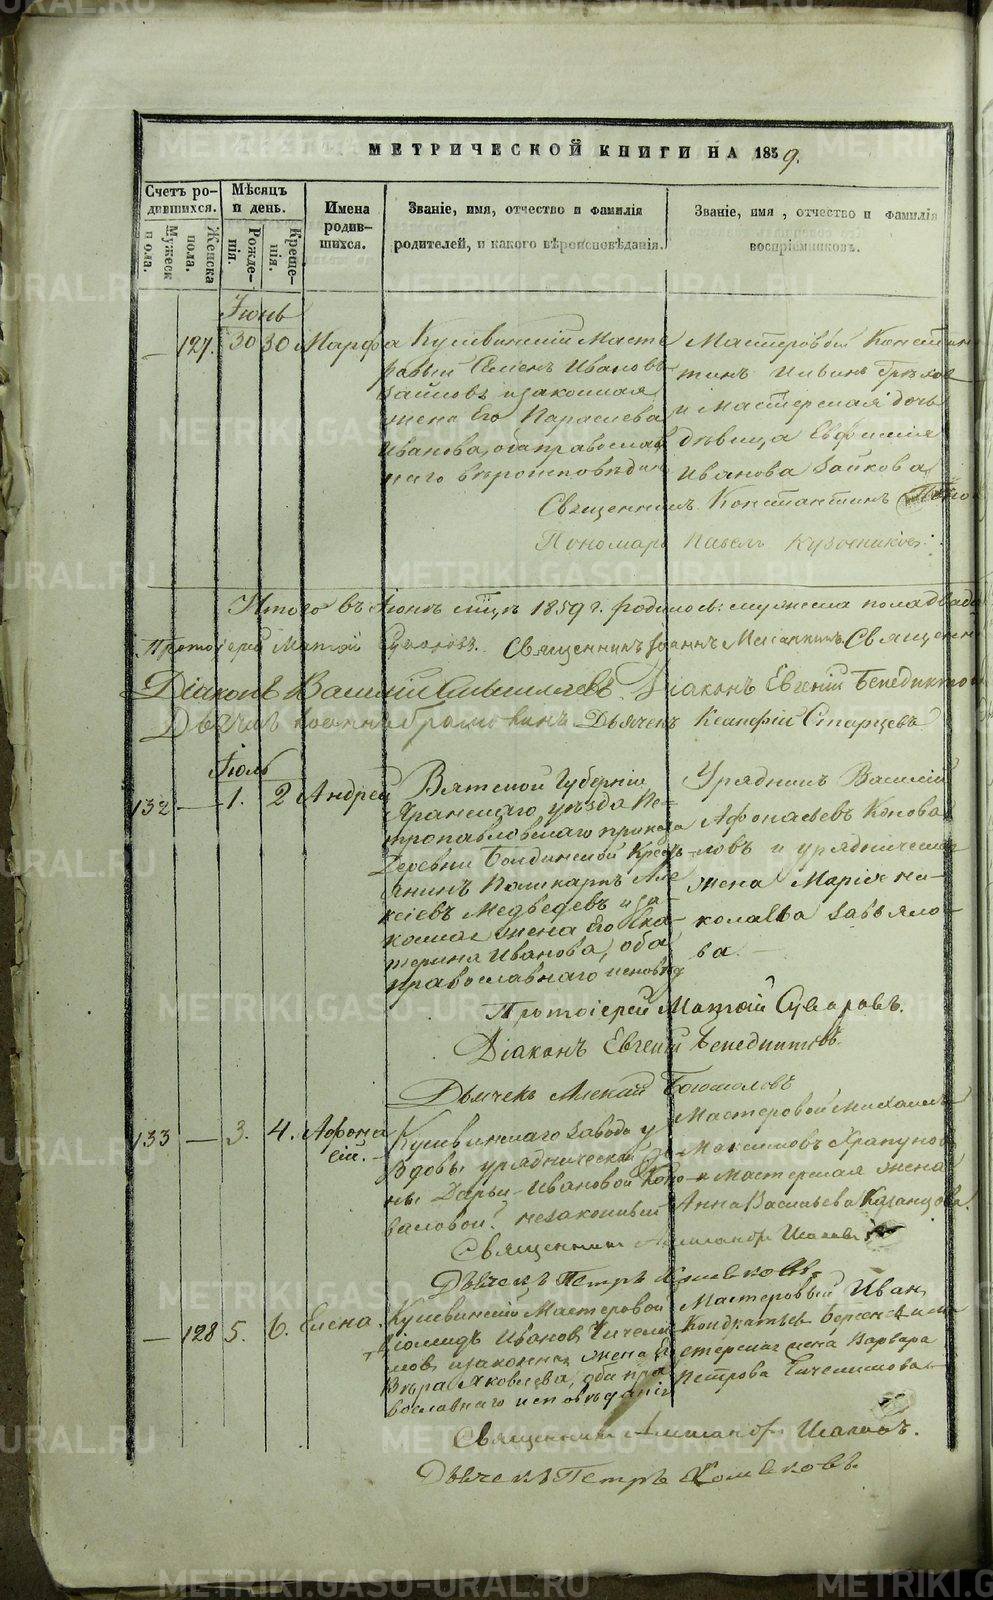 МЕТРИЧЕСКОЙ КНИГИ НА 1859.
Счетъ ро-
дившихся.
Мужеск
пола.
Женска
пола.
Мѣсяцъ
и день.
Рожде-
нія.
Креще-
нія.
Имена
родив-
шихся.
Званіе, имя, отчество и фамилія
родителей, и какого вѣроисповѣданія.
Званіе, имя, отчество и фамилія
воспріемниковъ.
Іюнь
— 127. 30 30 Марфа
Кушвинскій Масте
ровый Семенъ Ивановъ
и законная
жена Его Параскева
Иванова, оба православ
наго вѣроисповѣдан
Мастеровой Констан
тинъ
и Мастерская дочь
дѣвица Евфимія
Иванова Зайкова
Священникъ Константинъ
Пономарь Павелъ
Итого въ Іюнѣ м̃цѣ 1859 г. родилось: мужеска пола двадц
Протоіерей Матѳій Суворовъ. Священникъ Іоаннъ Священн
Діаконъ Василій Діаконъ Евгеній Бенедиктов
Дьячекъ Дьячекъ Ксанфій Старцевъ
Іюль
132 — 1. 2 Андрей
Вятской Губерніи
Яранскаго уѣзда Пе-
тропавловскаго приказа
Деревни Болдинской Кресть-
янинъ Поликарпъ Але
ксіевъ Медвѣдевъ и за-
конная жена его Ека-
терина Иванова, оба
православнаго исповѣд
Урядникъ Василій
Афонасьевъ Конова
ловъ и урядническая
жена Марія Ни-
колаева Завьяло-
ва. —
Протоіерей Матѳій Суворовъ.
Діаконъ Евгеній Бенедиктовъ.
Дьячекъ Алексій Богомоловъ
133 — 3. 4. Афона
сій.
Кушвинскаго завода у
Вдовы уряднической
ны Дарьи Ивановой Коно-
валовой: незаконный
Мастеровой Михаилъ
Максимовъ Храпунов
и Мастерская жена
Анна Васильева Казанцова.
Священникъ Александръ
Дьячекъ Петръ
— 128 5. 6. Елена.
Кушвинскій Мастеровой
Діомидъ Ивановъ
ловъ и законная жена
Вѣра Яковлева, оба пра
вославнаго исповѣданія
Мастеровый Иван
Кондратьевъ
стерская жена Варвара
Петрова
Священникъ Александръ
Дьячекъ Петръ
METRIKI.GASO-URAL.RU